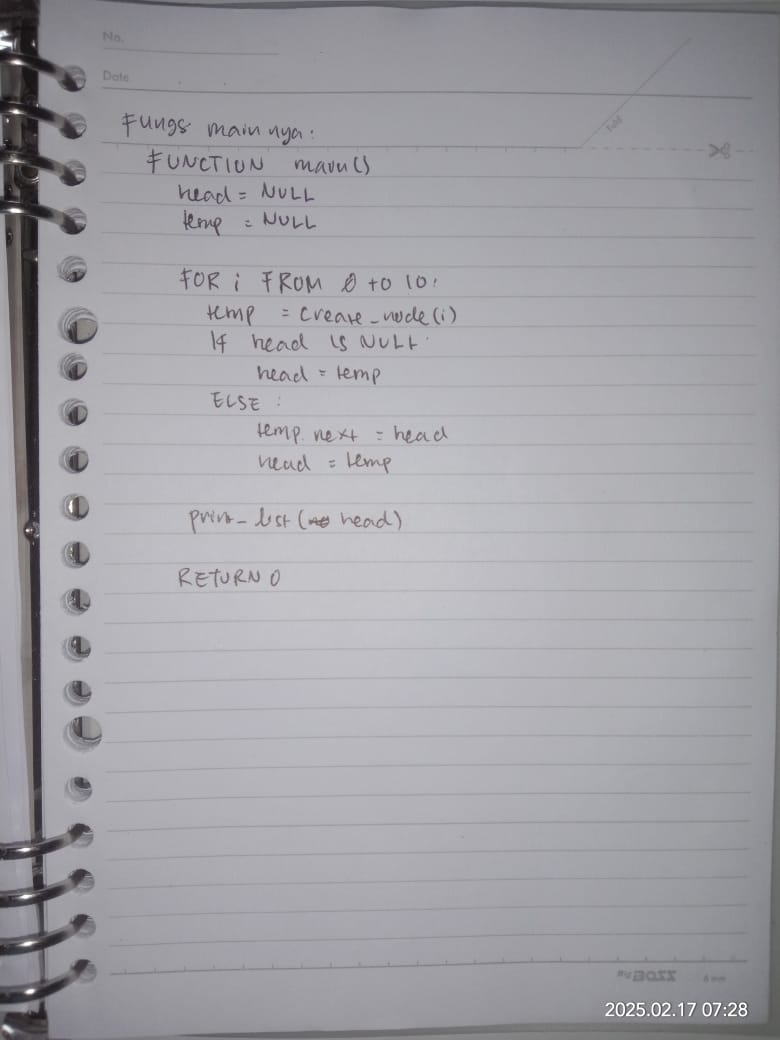 No.
Date
Fungs main nya:
FUNCTION main()
head = NULL
temp = NULL
FOR i FROM 0 to 10:
temp = create_node(i)
If head is NULL:
head = temp
ELSE :
temp. next = head
head = temp
print_list (head)
RETURN 0
BOSS
6 mm
2025.02.17 07:28